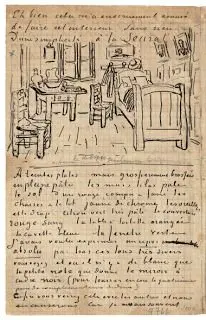 Eh bien cela m'a énormément amusé
de faire cet intérieur sans rien
D'une simplicité à la Seurat.
A teintes plates mais grossièrement brossées
en pleine pâte les murs lilas pâle
le sol d'un rouge rompu & fané les
chaises & le lit jaune de chrome les oreillers
et le drap citron vert très pâle la couverture
rouge sang la table à toilette orangée
la cuvette bleue la fenêtre verte
J'avais voulu exprimer un repos
absolu par tous ces tons très divers
vous voyez et où il n'y a de blanc que
la petite note que donne le miroir à
cadre noir (pour fourrer encore la quatrième
paire de complémentaires dedans)
Enfin vous verrez cela avec les autres et nous
en causerons car je